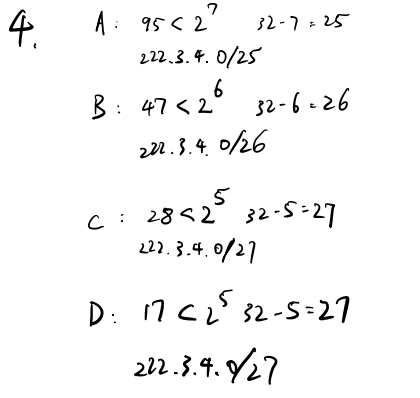 4. A: 95 < 2^7 32-7=25
222.3.4.0/25
B: 47 < 2^6 32-6=26
222.3.4.0/26
C: 28 < 2^5 32-5=27
222.3.4.0/27
D: 17 < 2^5 32-5=27
222.3.4.0/27